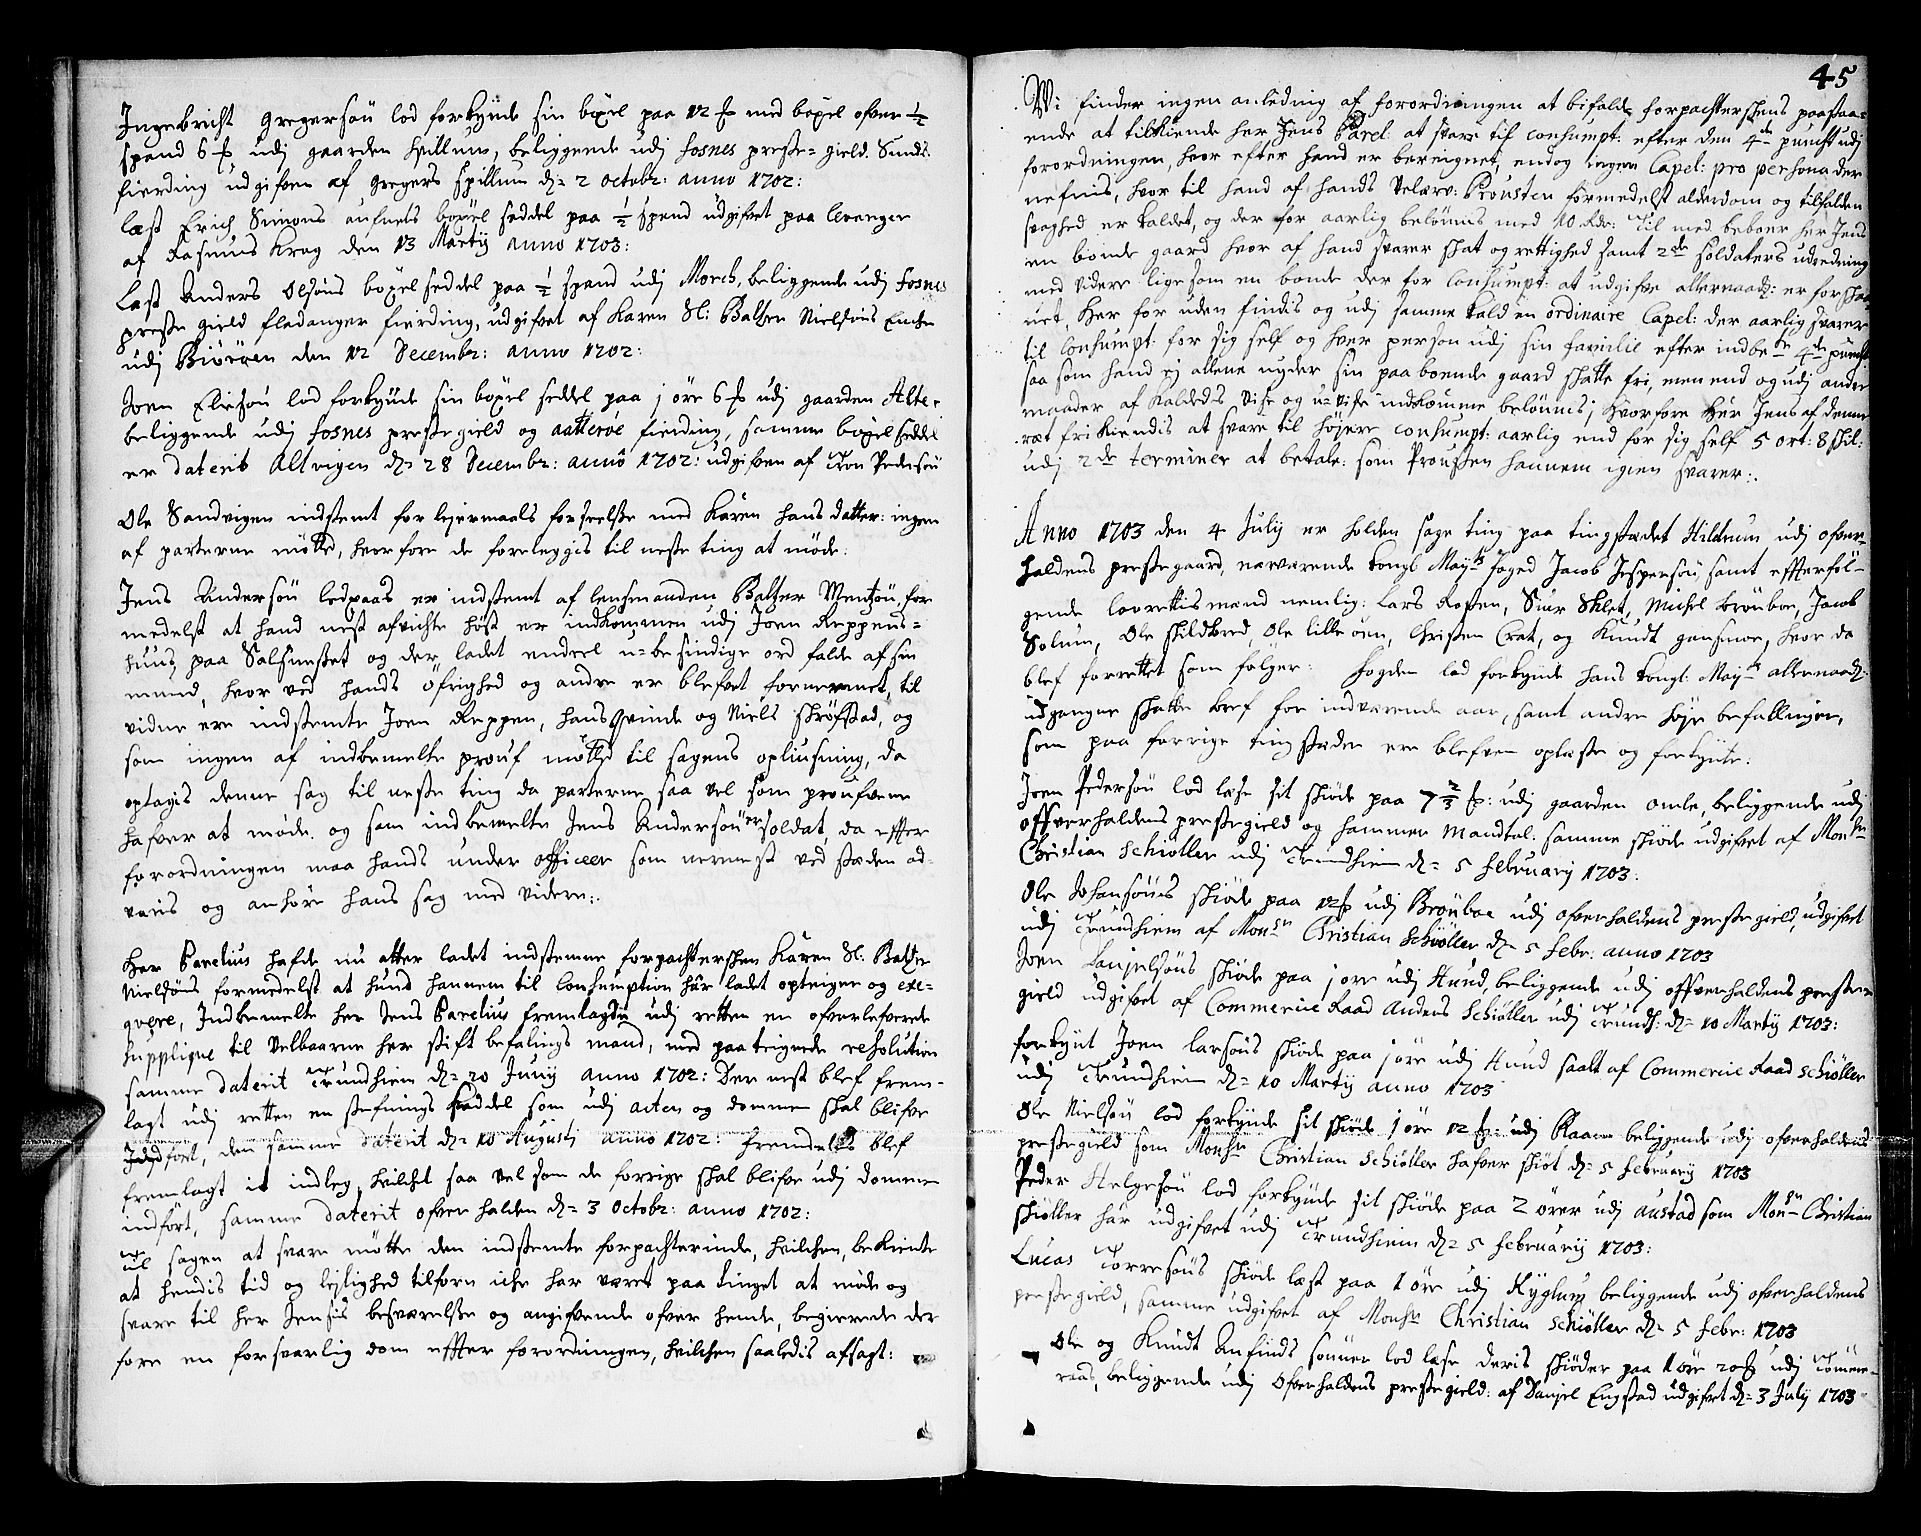 Ingebricht Gregersøn lod forkynde sin böxel paa 12 ℔ med böxel ofver ½
spand 6 ℔ udj gaarden Spillum, beliggende udj fosnes prestegield. Sunds
fierding udgifven af gregers Spillum dʒ 2 octobr: anno 1702:
læst Erich Simons böxel seddel paa ½ spand udgifvet paa levanger
af Rasmus Krag den 13 Martij anno 1703:
Læst Anders Olsöns böxel seddel paa ½ spand udj Morch, beliggende udj fosnes
prestegield fladanger fierding, udgifvet af Karen Sl: Baltzer Nielsöns Encke
udj Biöröen den 12 Decembr: anno 1702:
Joen Eliesøn lod forkynde sin böxel seddel paa j öre 6 ℔ udj gaarden Alte
beliggende udj fosnes prestegield og aatteröe fierding, samme böxel seddel
er daterit Altvigen dʒ 28 Decembr: annô 1702: udgifven af Ton Pedersøn
Ole Sandvigen indstemt for lejermaals forseelsse med Karen hans datter: ingen
af parterne mötte, hvorfore de foreleggis til neste ting at möde:
Jens Andersøn ledpaas er indstemt af lensmanden Baltzer Mentzøn, for
medelst at hand nest afvichte höst er indkommen udj Joen Reppens
huus paa Salsneset og der ladet endeel u-besindige ord falde af sin
mund, hvor ved hands öfrighed og andre er blefvet fornermet, til
vidne ere indstemte Joen Reppen, hans qvinde og Niels skröfstad, og
som ingen af indbemelte prouf mötte til sagens opliusning, da
optagis denne sag til neste ting da parterne saa vel som proufvene
hafver at möde. og som indbemelte Jens Andersøn er soldat, da effter
forordningen maa hands under officeer som nermest ved stæden ad-
varis og anhöre hans sag med videre:
Her Parelius hafde nu atter ladet indstemme forpachterschen Karen Sl: Baltzer
Nielsöns formedelst at hund hannem til Consumption har ladet opteigne og exe-
qvere, Indbemelte her Jens Parelius fremlagde udj retten en ofverlefverede
supplique til velbaarne her stift befalings mand, med paateignede resolution
samme daterit Trundhiem dʒ 20 Junij anno 1702: Der nest blef frem-
lagt udj retten en stefnings seddel som udj acten og dommen skal blifve
Indfört, den samme daterit dʒ 10 Augustj anno 1702: fremdeelis blef
fremlagt it indleg, hvilchet saa vel som de forrige skal blifve udj dommen
indfört, samme daterit ofverhalden dʒ 3 octobr: anno 1702:
Til sagen at svare mötte den indstemte forpachterinde, hvilchen bekiente
at hendis tid og lejlighed tilforn iche har været paa tinget at möde og
svare til her Jensis besværelsse og angifvende ofver hende, begierede der
fore en forsvarlig dom effter forordningen, hvilchen saaledis afsagt:
45
Wi finder ingen anledning af forordningen at bifalde forpachterschens paastaa-
ende at tilkiende her Jens Parel: at svare til consumpt: efter den 4de puncht udj
forordningen, hvor efter hand er bereignet, endog ingen Capel: pro persona der
nefnis, hvor til hand af hands velærv: Prousten formedelst alderdom og tilfalden
svaghed er kaldet, og der for aarlig belönnis med 10 Rdr: Til med beboer her Jens
en bonde gaard hvor af hand svarer skat og rettighed samt 2de soldaters udredning
med videre ligesom en bonde der for Consumpt: at udgifve allernaadʒ: er forskaa-
net, Her for uden findis og udj samme kald en ordinaire Capel: der aarlig svarer
til Consumpt: for sig self og hver person udj sin familie efter indbe:te 4de puncht
saa som hand ej allene nyder sin paaboende gaard skatte fri, men end og udj andre
maader af kaldeds vise og u-vise indkomme belönnis; hvorfore her Jens af denne
ræt frikiendis at svare til höjere consumpt: aarlig end for sig self 5 ort: 8 skil:
udj 2de terminer at betale: som Prousten hannem igien svarer:.
Anno 1703 den 4 July er holden sage ting paa tingstædet Hildrum udj ofver-
haldens prestegaard, nærværende kongl: Mayts foged Jacob Jespersøn, samt effterföl-
gende laurettismænd nemlig: Lars Rosten, Siur Sklet, Michel Brönboe, Jacob
Solum, Ole skildbred, Ole lille öen, Christen Crat, og Knudt gansmoe, hvor da
blef forrettet som fölger: fogden lod forkynde hans kongl: Mayts allernaadʒ:
udgangne skatte bref for indværende aar, samt andre höje befallinger,
som paa forrige tingstæder ere blefven oplæste og forkynte:
Joen Pedersøn lod læse sit skiöde paa 7⅔ ℔: udj gaarden omle, beliggende udj
offverhaldens prestegield og hammer mandtal: samme skiöde udgifvet af Monsr
Christian Schiöller udj Trundhiem dʒ 5 february 1703.
Ole Johansöns skiöde paa 12 ℔ udj Brönboe udj ofverhaldens prestegield, udgifvet
udj Trundhiem af Monsr Christian Schiöller dʒ 5 febr: anno 1703
Joen Danjelsöns skiöde paa j öre udj Hund, beliggende udj offverhaldens preste-
gield udgifvet af Commercie Raad Anders Schiöller udj Trundh: dʒ 10 Martij 1703:
forkynt Joen larsöns skiöde paa j öre udj Hund saalt af Commercie Raad Schiöller
udj Trundhiem dʒ 10 Martij anno 1703
Ole Nielsøn lod forkynde sit skiöde j öre 12 ℔: udj Raaem beliggende udj ofverhaldens
prestegield som Monsr Christian Schiöller hafver skiöt dʒ 5 february 1703
Peder Helgesøn lod forkynde sit skiöde paa 2 örer udj austad som Monsr Christian
Schiöller har udgifvet udj Trundhiem dʒ 5 februarij 1703:
Lucas Torresöns skiöde læst paa 1 öre udj Ryglung beliggende udj ofverhaldens
prestegield, samme udgifvet af Monsr Christian Schiöller dʒ 5 febr: 1703
Ole og Knudt Anfinds sönner lod læse deris skiöder paa 1 öre 20 ℔ udj Tömmer-
raas, beliggende udj ofverhaldens prestegield: af Danjel Engstad udgifvet dʒ 3 July 1703